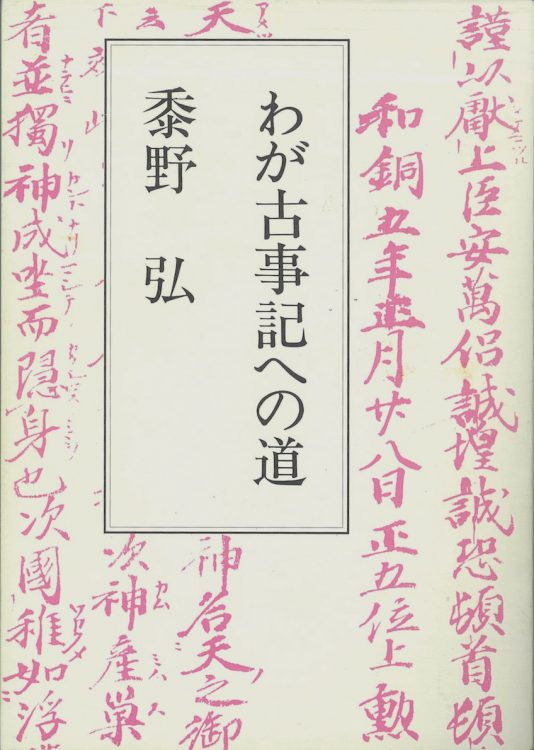 謹以獻上臣安萬侶誠惶誠恐頓首頓
和銅五年正月廿八日正五位上勲
わが古事記への道
黍野 弘
天
神名天之御
次神産巣
者並獨神成坐而隠身也次國稚如浮